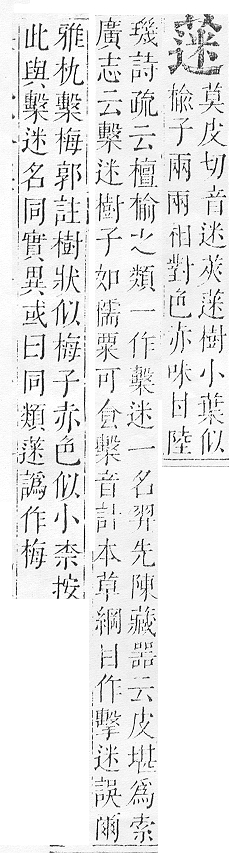 蒾
莫皮切音迷莢蒾樹小葉似
楡子兩兩相對色亦味甘陸
璣詩疏云檀榆之類一作檕迷一名羿先陳藏器云皮堪爲索
廣志云檕迷樹子如檽粟可食檕音計本草綱目作擊迷誤爾
雅朹檕梅郭註樹狀似梅子赤色似小柰按
此與檕迷名同實異或曰同類蒾譌作梅